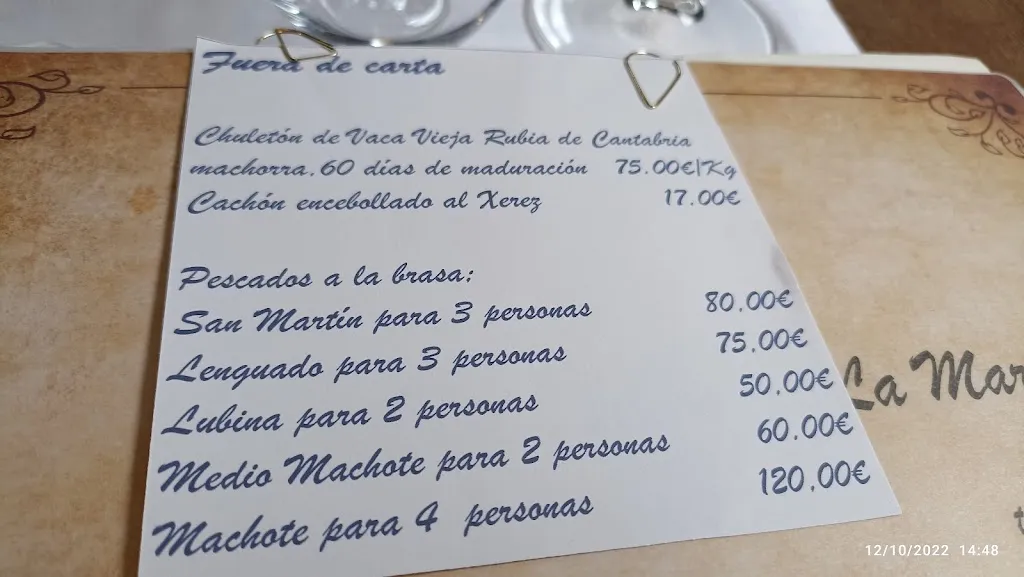 Fuera de carta
Chuletón de Vaca Vieja Rubia de Cantabria
machorra. 60 días de maduración 75.00€/Kg
Cachón encebollado al Xerez 17.00€
Pescados a la brasa:
San Martín para 3 personas 80.00€
Lenguado para 3 personas 75.00€
Lubina para 2 personas 50.00€
Medio Machote para 2 personas 60.00€
Machote para 4 personas 120.00€
La Mar
12/10/2022 14:48